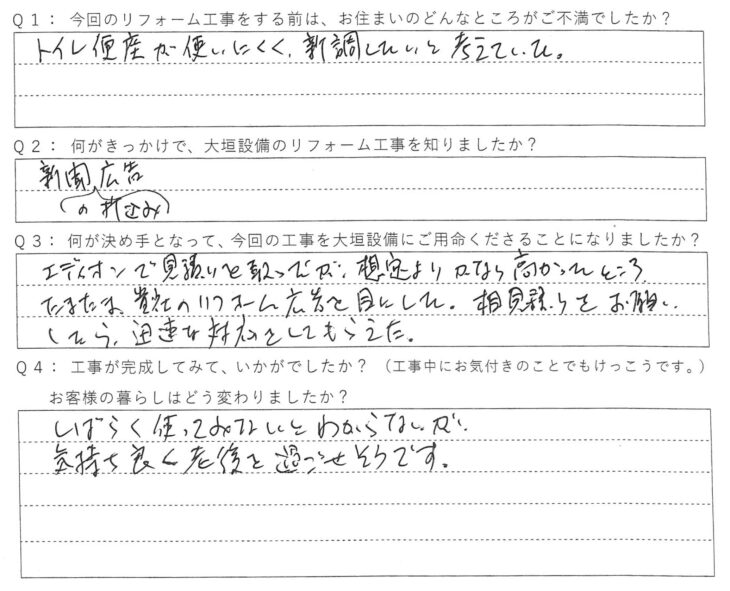 Q1: 今回のリフォーム工事をする前は、お住まいのどんなところがご不満でしたか?
トイレ便座が使いにくく、新調したいと考えていた。
Q2: 何がきっかけで、大垣設備のリフォーム工事を知りましたか?
新聞広告
(の折込み)
Q3: 何が決め手となって、今回の工事を大垣設備にご用命くださることになりましたか?
エディオンで見積りを取ったが、想定よりかなり高かったところ
たまたま、貴社のリフォーム広告を目にした。相見積りをお願い
したら、迅速な対応をしてもらえた。
Q4: 工事が完成してみて、いかがでしたか? (工事中にお気付きのことでもけっこうです。)
お客様の暮らしはどう変わりましたか?
しばらく使ってみないとわからないが、
気持ち良く老後を過ごせそうです。